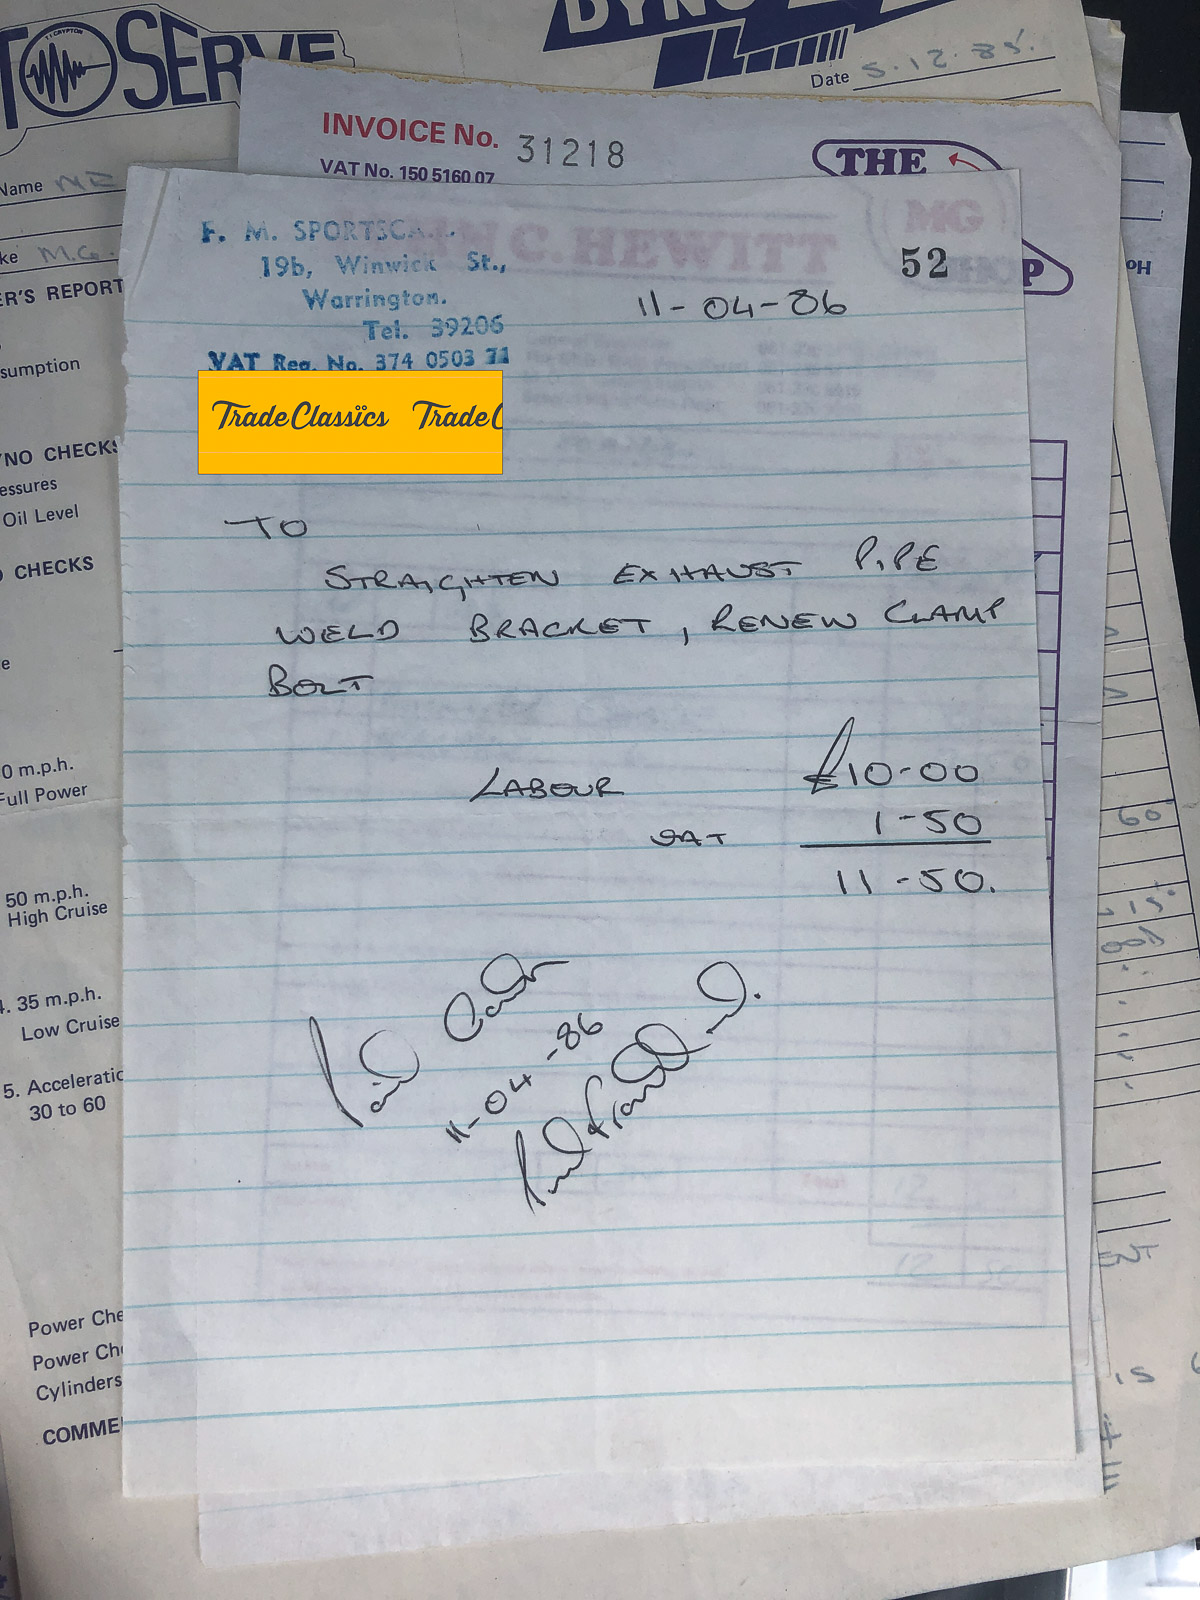 T.I. CRYPTON
SERVE
Date 5.12.85.
INVOICE No. 31218
VAT No. 150 5160 07
THE
MG
SHOP
C. HEWITT
Name
M.G.
ER'S REPORT
sumption
NO CHECKS
essures
Oil Level
CHECKS
0 m.p.h.
Full Power
50 m.p.h.
High Cruise
35 m.p.h.
Low Cruise
5. Acceleratic
30 to 60
Power Che
Power Ch
Cylinders
COMME
F. M. SPORTSCA
19b, Winwick St.,
Warrington.
Tel. 39206
VAT Reg. No. 374 0503 71
52
11-04-86
Trade Classics Trade C
TO
STRAIGHTEN EXHAUST PIPE
WELD BRACKET, RENEW CLAMP
BOLT
LABOUR £10-00
VAT 1-50
11-50.
Paid
11-04-86
60
ENT